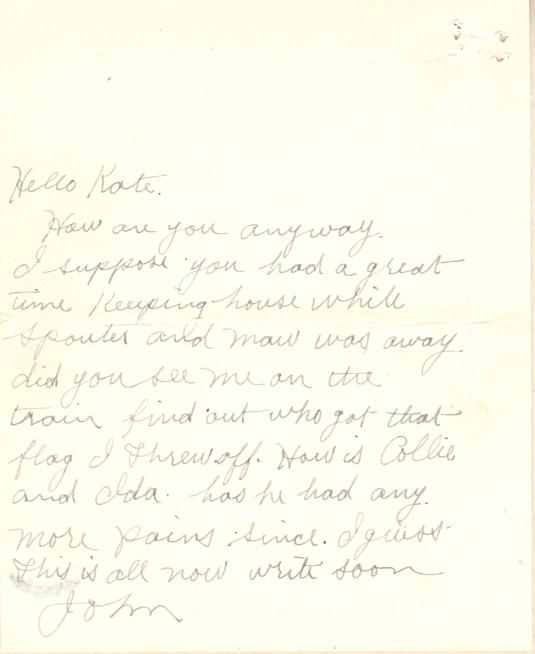 Hello Kate.
How are you anyway.
I suppose you had a great
time Keeping house while
Spouter and maw was away
did you see me on the
train find out who got that
flag I Threw off. How is Collie
and Ida. has he had any.
more pains since. I guess
This is all now write soon
John